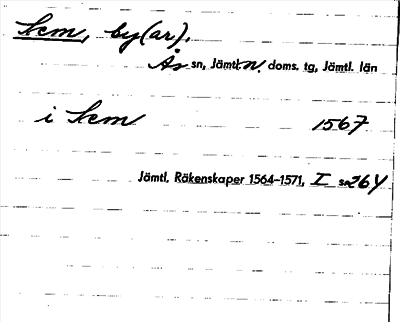 Hem, by(ar).
Ås sn, Jämtl. n. doms. tg, Jämtl. län
i Hem 1567
Jämtl. Räkenskaper 1564-1571, I s. 264